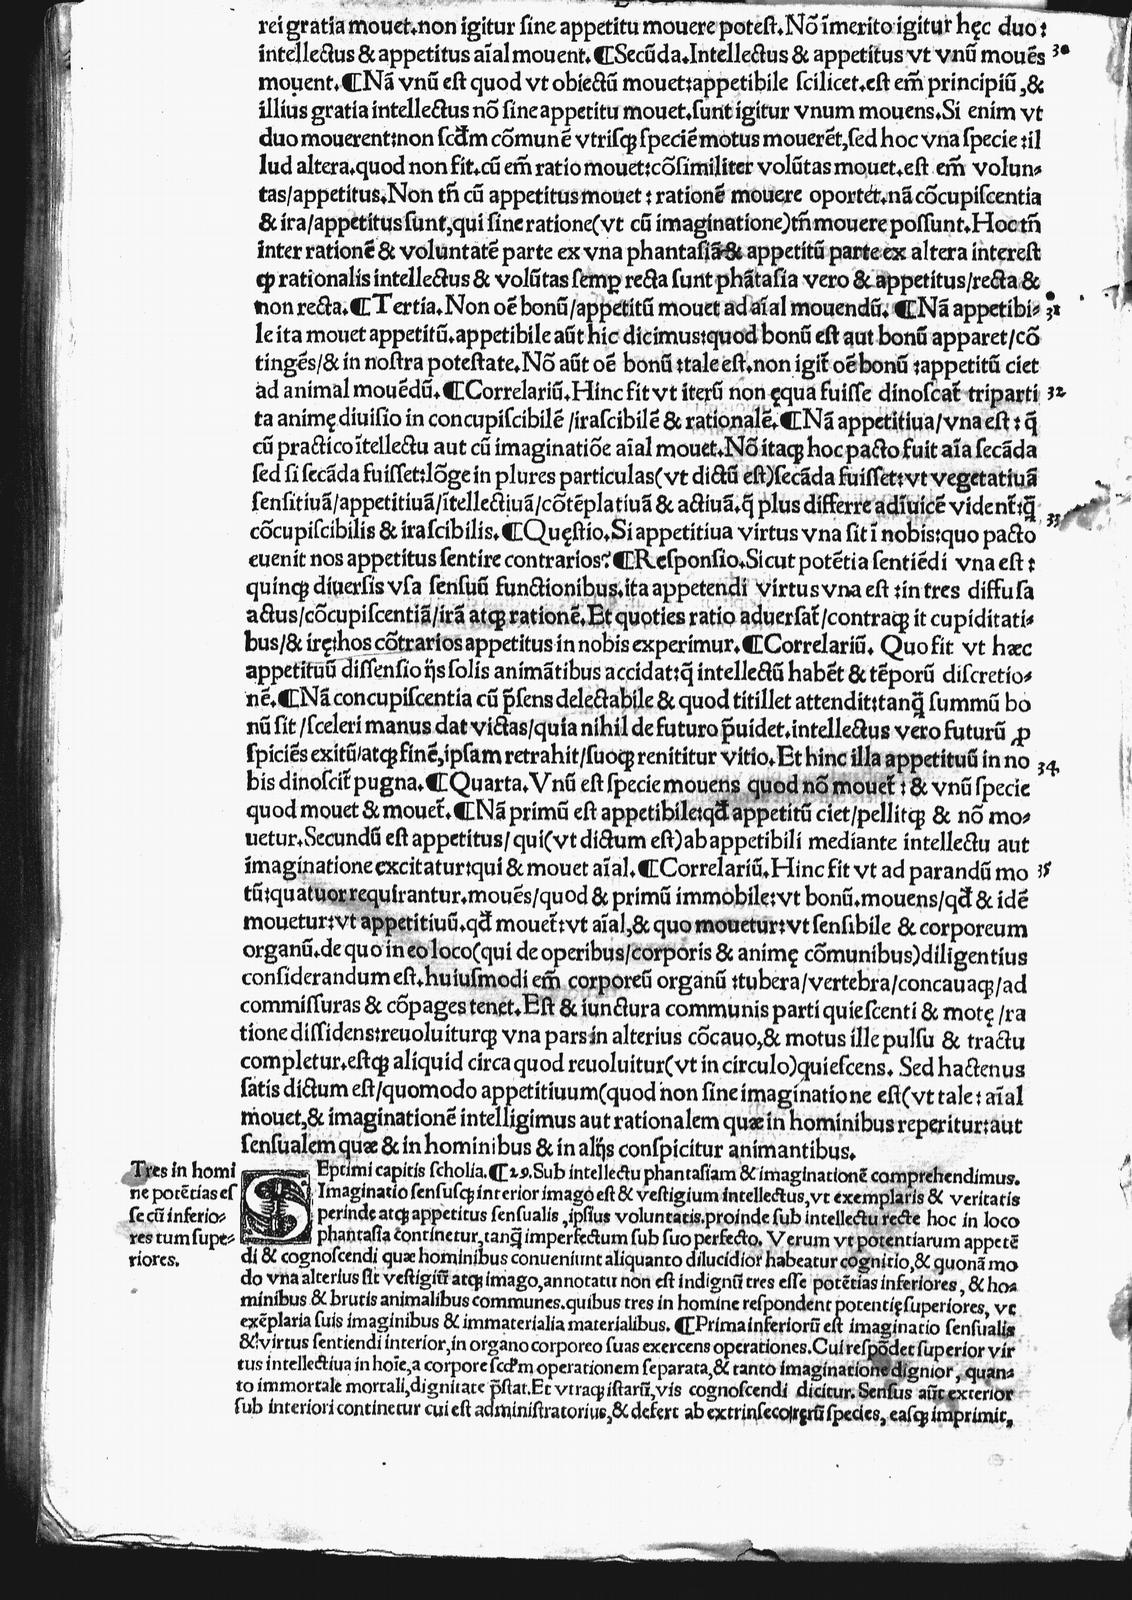 rei gratia mouet.non igitur sine appetitu mouere potest.Nō īmerito igitur hęc duo:
intellectus & appetitus aīal mouent.¶Secūda.Intellectus & appetitus vt vnū mouēs 30
mouent.¶Nā vnū est quod vt obiectū mouet:appetibile scilicet.est em̄ principiū,&
illius gratia intellectus nō sine appetitu mouet.sunt igitur vnum mouens.Si enim vt
duo mouerent:non scd̄m cōmunē vtrisqꝫ speciē motus mouerēt,sed hoc vna specie:il
lud altera.quod non fit.cū em̄ ratio mouet:cōsimiliter volūtas mouet.est em̄ volun⸗
tas/appetitus.Non tn̄ cū appetitus mouet:rationē mouere oportet.nā cōcupiscentia
& ira/appetitus sunt,qui sine ratione(vt cū imaginatione)tn̄ mouere possunt.Hoc tn̄
inter rationē & voluntatē parte ex vna phantasiā & appetitū parte ex altera interest
ꝙ rationalis intellectus & volūtas semꝑ recta sunt phātasia vero & appetitus/recta &
non recta.¶Tertia.Non oē bonū/appetitū mouet ad aīal mouendū.¶Nā appetibi⸗ 31
le ita mouet appetitū.appetibile aūt hic dicimus:quod bonū est aut bonū apparet/cō
tingēs/& in nostra potestate.Nō aūt oē bonū:tale est.non igit̄ oē bonū:appetitū ciet
ad animal mouēdū.¶Correlariū.Hinc fit vt iterū non ęqua fuisse dinoscat̄ triparti 32
ta animę diuisio in concupiscibilē/irascibilē & rationalē.¶Nā appetitiua/vna est:q̄
cū practico ītellectu aut cū imaginatiōe aīal mouet.Nō itaqꝫ hoc pacto fuit aīa secāda
sed si secāda fuisset:lōge in plures particulas(vt dictū est)secāda fuisset:vt vegetatiuā
sensitiuā/appetitiuā/ītellectiuā/cōtēplatiuā & actiuā.q̄ plus differre adīuicē vident̄:q̄
cōcupiscibilis & irascibilis.¶Quęstio.Si appetitiua virtus vna sit ī nobis:quo pacto 33
euenit nos appetitus sentire contrarios?¶Responsio.Sicut potētia sentiēdi vna est:
quinqꝫ diuersis vsa sensuū functionibus.ita appetendi virtus vna est:in tres diffusa
actus/cōcupiscentiā/irā atqꝫ rationē.Et quoties ratio aduersat̄/contraqꝫ it cupiditati⸗
bus/& irę:hos cōtrarios appetitus in nobis experimur.¶Correlariū. Quo fit vt hæc
appetituū dissensio ijs solis animātibus accidat:q̄ intellectū habēt & tēporū discretio⸗
nē.¶Nā concupiscentia cū p̄sens delectabile & quod titillet attendit:tanq̄ summū bo
nū sit/sceleri manus dat victas/quia nihil de futuro p̄uidet.intellectus vero futurū ꝓ
spiciēs exitū/atqꝫ finē,ipsam retrahit/suoqꝫ renititur vitio.Et hinc illa appetituū in no
bis dinoscit̄ pugna.¶Quarta.Vnū est specie mouens quod nō mouet̄:& vnū specie 34
quod mouet & mouet̄.¶Nā primū est appetibile:qd̄ appetitū ciet/pellitqꝫ & nō mo⸗
uetur.Secundū est appetitus/qui(vt dictum est)ab appetibili mediante intellectu aut
imaginatione excitatur:qui & mouet aīal.¶Correlariū.Hinc fit vt ad parandū mo 35
tū:quatuor requirantur.mouēs/quod & primū immobile:vt bonū.mouens/qd̄ & idē
mouetur:vt appetitiuū.qd̄ mouet̄:vt aīal,& quo mouetur:vt sensibile & corporeum
organū.de quo in eo loco(qui de operibus/corporis & animę cōmunibus)diligentius
considerandum est.huiusmodi em̄ corporeū organū:tubera/vertebra/concauaqꝫ/ad
commissuras & cōpages tenet.Est & iunctura communis parti quiescenti & motę/ra
tione dissidens:reuoluiturqꝫ vna pars in alterius cōcauo,& motus ille pulsu & tractu
completur.estqꝫ aliquid circa quod reuoluitur(vt in circulo)quiescens. Sed hactenus
satis dictum est/quomodo appetitiuum(quod non sine imaginatione est(vt tale:aīal
mouet,& imaginationē intelligimus aut rationalem quæ in hominibus reperitur:aut
sensualem quæ & in hominibus & in alijs conspicitur animantibus.
Tres in homi
ne potētias es
se cū inferio⸗
res tum supe⸗
riores.
SEptimi capitis scholia.¶29.Sub intellectu phantasiam & imaginationē comprehendimus.
Imaginatio sensusqꝫ interior imago est & vestigium intellectus,vt exemplaris & veritatis
perinde atqꝫ appetitus sensualis,ipsius voluntatis.proinde sub intellectu recte hoc in loco
phantasia continetur,tanq̄ imperfectum sub suo perfecto. Verum vt potentiarum appetē
di & cognoscendi quæ hominibus conueniunt aliquanto dilucidior habeatur cognitio,& quonā mo
do vna alterius sit vestigiū atqꝫ imago,annotatu non est indignū tres esse potētias inferiores,& ho⸗
minibus & brutis animalibus communes.quibus tres in homine respondent potentię superiores, vt
exēplaria suis imaginibus & immaterialia materialibus.¶Prima inferiorū est imaginatio sensualis
& virtus sentiendi interior,in organo corporeo suas exercens operationes.Cui respōdet superior vir
tus intellectiua in hoīe,a corpore scd̄m operationem separata,& tanto imaginatione dignior, quan⸗
to immortale mortali,dignitate p̄stat.Et vtraqꝫ istarū,vis cognoscendi dicitur. Sensus aūt exterior
sub interiori continetur cui est administratorius,& defert ab extrinseco rerū species, easqꝫ imprimit,